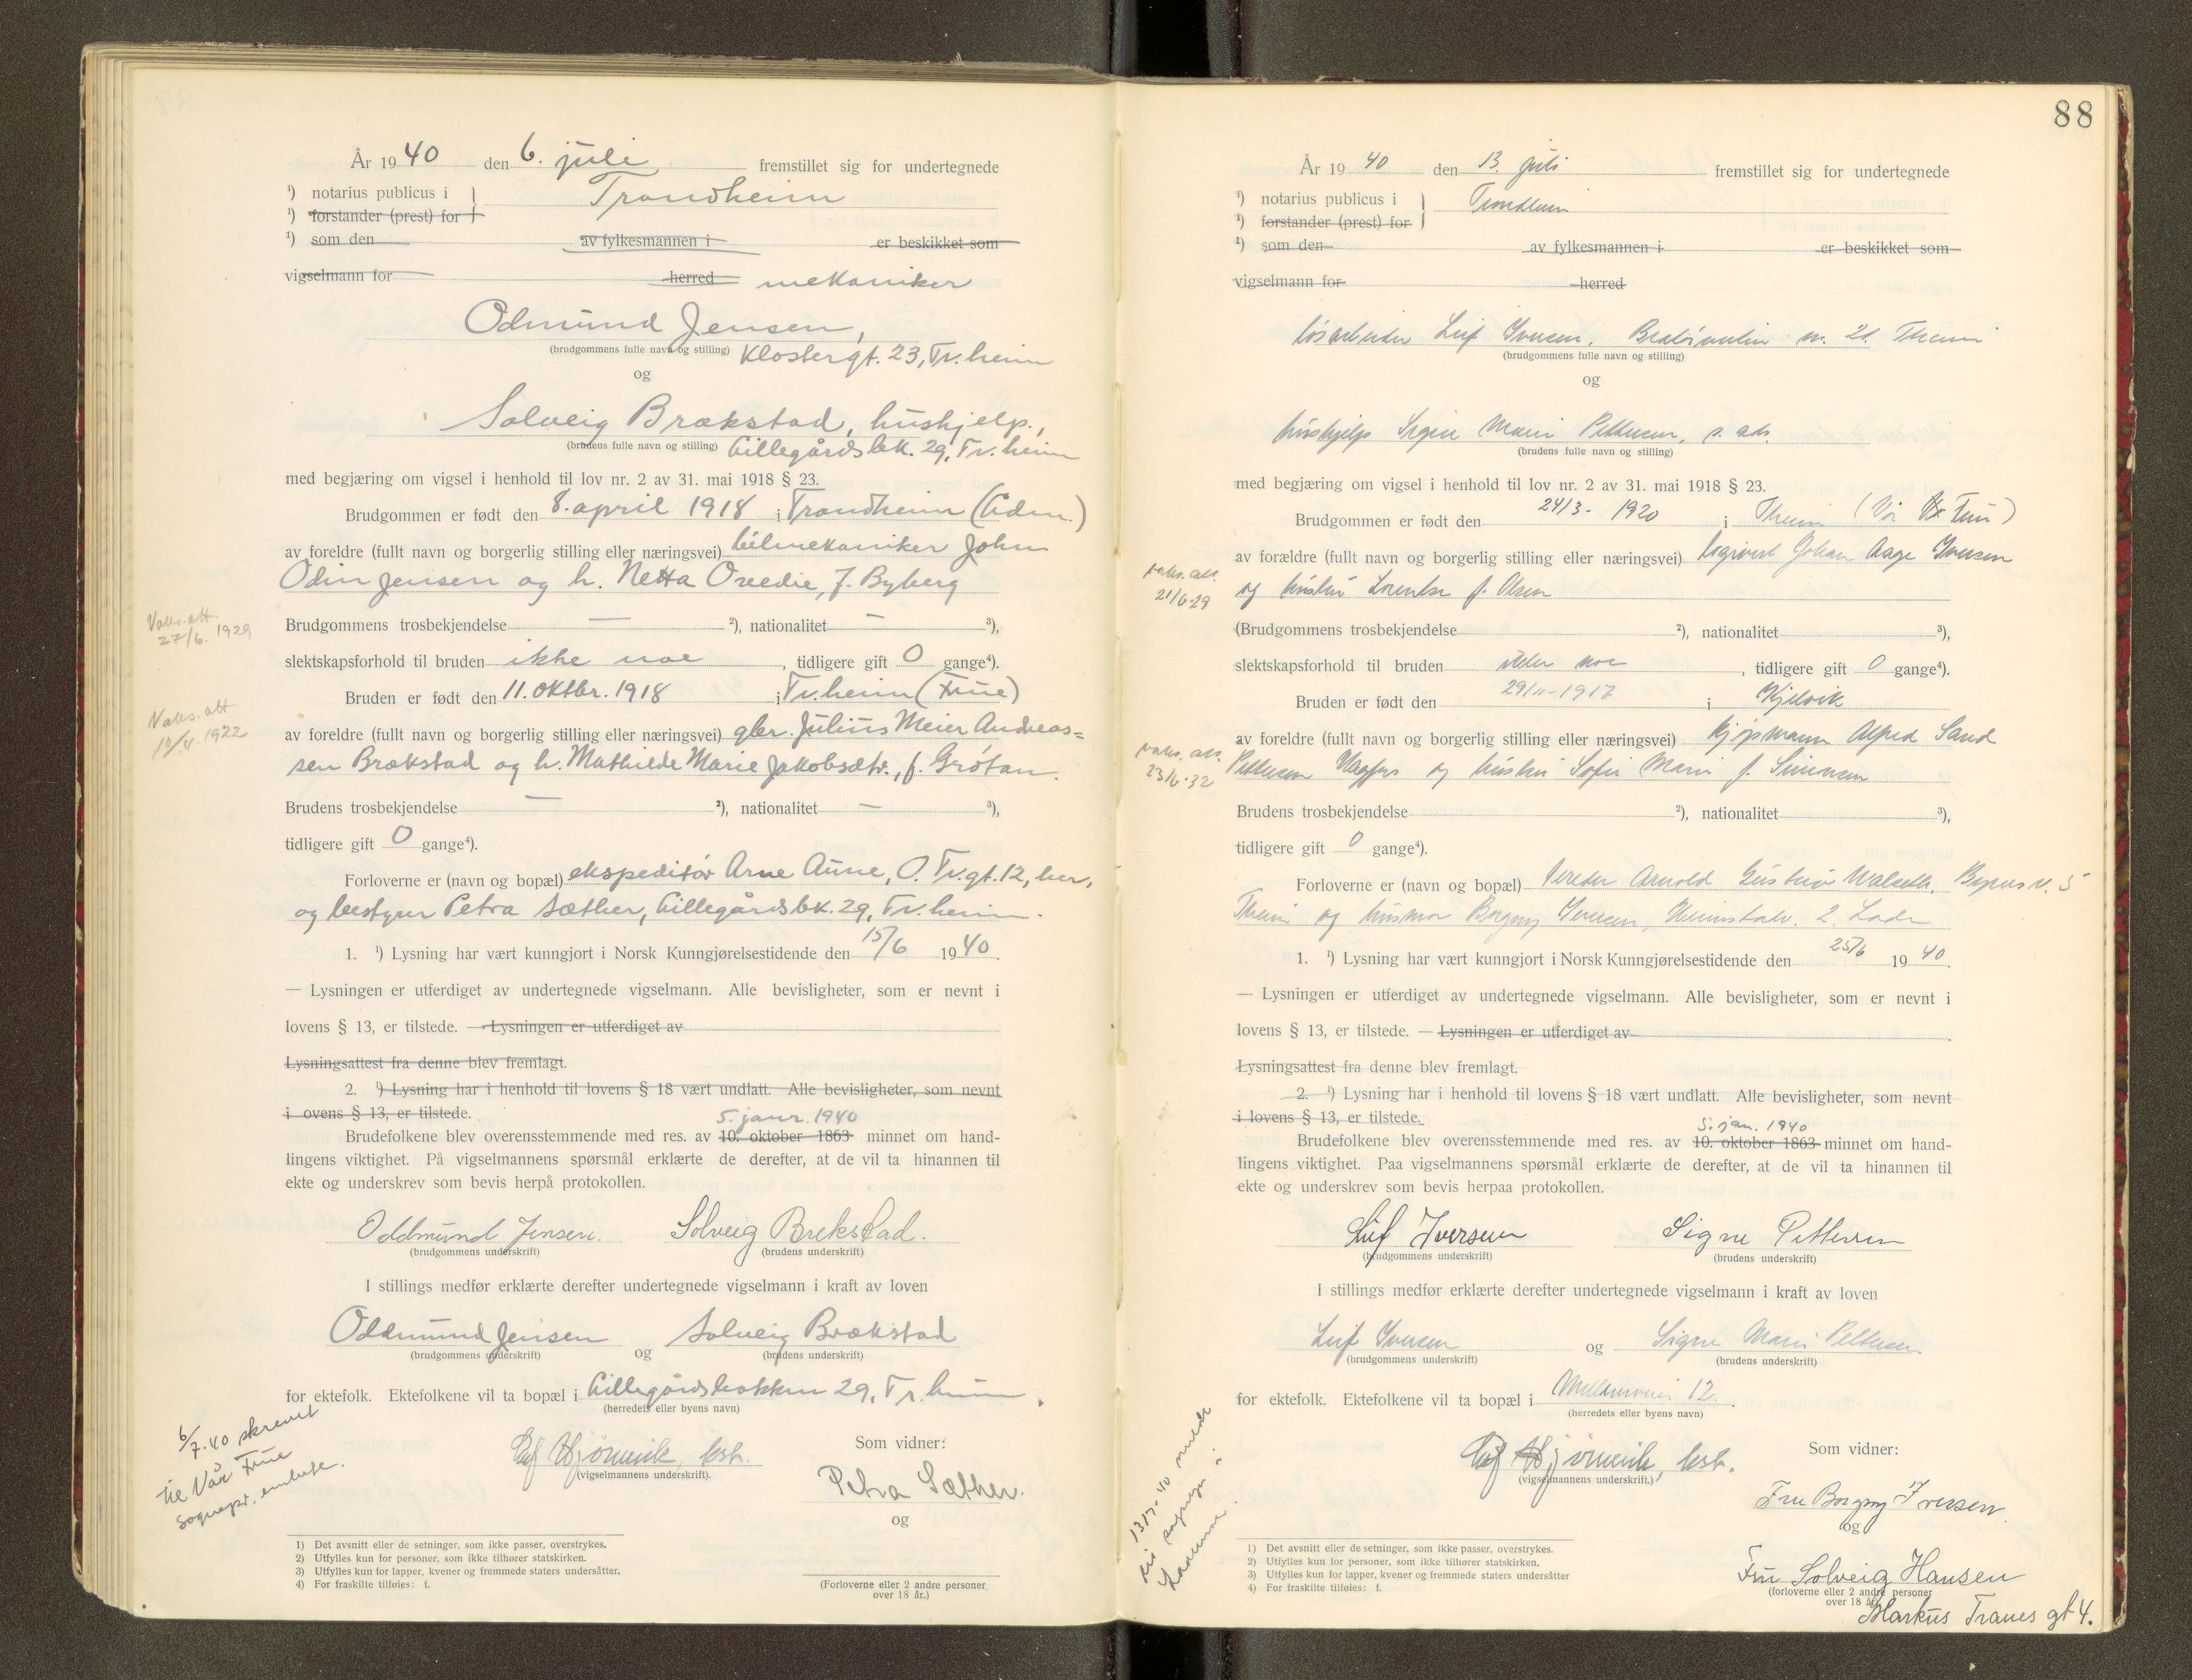 År 1940 den 6. juli fremstillet sig for undertegnede
¹) notarius publicus i } Trondheim
¹) forstander (prest) for
¹) som den av fylkesmannen i er beskikket som
vigselmann for herred mekaniker
Odmund Jensen,
(brudgommens fulle navn og stilling) Klostergt. 23, Tr.heim
og
Solveig Brækstad, hushjelp.,
(brudens fulle navn og stilling) Lillegårdsbk. 29, Tr.heim
med begjæring om vigsel i henhold til lov nr. 2 av 31. mai 1918 § 23.
Brudgommen er født den 8. april 1918 i Trondheim (Adm.)
av foreldre (fullt navn og borgerlig stilling eller næringsvei) bilmekaniker John
Odin Jensen og h. Netta Ovedie, f. Byberg
Vaks.att. 27/6. 1929
Brudgommens trosbekjendelse — ²), nationalitet — ³),
slektskapsforhold til bruden ikke noe, tidligere gift 0 gange⁴).
Bruden er født den 11. oktbr. 1918 i Tr.heim (Frue)
Vaks. att 1922
av foreldre (fullt navn og borgerlig stilling eller næringsvei) gbr. Julius Meier Andreas=
sen Brækstad og h. Mathilde Marie Jakobsdtr., f. Grøtan.
Brudens trosbekjendelse — ²), nationalitet — ³),
tidligere gift 0 gange⁴).
Forloverne er (navn og bopæl) ekspeditør Arne Aune, O. Tr.gt. 12, her,
og bestyrer Petra Sæther, Lillegårdsbk. 29, Tr.heim.
1. ¹) Lysning har vært kunngjort i Norsk Kunngjørelsestidende den 15/6 1940.
— Lysningen er utferdiget av undertegnede vigselmann. Alle bevisligheter, som er nevnt i
lovens § 13, er tilstede. — Lysningen er utferdiget av
Lysningsattest fra denne blev fremlagt.
2. ¹) Lysning har i henhold til lovens § 18 vært undlatt. Alle bevisligheter, som nevnt
i ovens § 13, er tilstede.
5. janr. 1940
Brudefolkene blev overensstemmende med res. av 10. oktober 1863 minnet om hand-
lingens viktighet. På vigselmannens spørsmål erklærte de derefter, at de vil ta hinannen til
ekte og underskrev som bevis herpå protokollen.
Oddmund Jensen. Solveig Brekstad.
(brudgommens underskrift) (brudens underskrift)
I stillings medfør erklærte derefter undertegnede vigselmann i kraft av loven
Oddmund Jensen og Solveig Brækstad
(brudgommens underskrift) (brudens underskrift)
for ektefolk. Ektefolkene vil ta bopæl i Lillegårdsbakken 29, Tr.heim.
(herredets eller byens navn)
6/7.40 skrevet
til Vår Frue
sognepr.
(vigselmannens underskrift).
Som vidner:
Petra Sæther.
og
(Forloverne eller 2 andre personer
over 18 år.)
1) Det avsnitt eller de setninger, som ikke passer, overstrykes.
2) Utfylles kun for personer, som ikke tilhører statskirken.
3) Utfylles kun for lapper, kvener og fremmede staters undersåtter.
4) For fraskilte tilføies: f.
88
År 1940 den 13. juli fremstillet sig for undertegnede
¹) notarius publicus i } Trondheim
¹) forstander (prest) for
¹) som den av fylkesmannen i er beskikket som
vigselmann for herred
løsarbeider Leif Iversen, nr. 21. Theim
(brudgommens fulle navn og stilling)
og
hushjelp Signe Marie Pettersen, s. ads.
(brudens fulle navn og stilling)
med begjæring om vigsel i henhold til lov nr. 2 av 31. mai 1918 § 23.
Brudgommen er født den 24/3- 1920 i Theim (Vår Frue)
av forældre (fullt navn og borgerlig stilling eller næringsvei) Johan Aage Iversen
og hustru Lorentse f. Olsen
vaks. att. 21/6-29
(Brudgommens trosbekjendelse ²), nationalitet ³),
slektskapsforhold til bruden noe, tidligere gift 0 gange⁴).
Bruden er født den 29/11-1917 i Kjelvik
av foreldre (fullt navn og borgerlig stilling eller næringsvei) kjøpmann Alfred Sand
vaks. att. 23/6-32
Pettersen og hustru Sofie Marie f. Simonsen
Brudens trosbekjendelse ²), nationalitet ³),
tidligere gift 0 gange⁴).
Forloverne er (navn og bopæl) Arnold 5
Theim og husmor Borgny Iversen, 2. Lade
1. ¹) Lysning har vært kunngjort i Norsk Kunngjørelsestidende den 25/6 1940.
— Lysningen er utferdiget av undertegnede vigselmann. Alle bevisligheter, som er nevnt i
lovens § 13, er tilstede. — Lysningen er utferdiget av
Lysningsattest fra denne blev fremlagt.
2. ¹) Lysning har i henhold til lovens § 18 vært undlatt. Alle bevisligheter, som nevnt
i lovens § 13, er tilstede.
5. jan. 1940
Brudefolkene blev overensstemmende med res. av 10. oktober 1863 minnet om hand-
lingens viktighet. Paa vigselmannens spørsmål erklærte de derefter, at de vil ta hinannen til
ekte og underskrev som bevis herpaa protokollen.
Leif Iversen Signe Pettersen
(brudgommens underskrift) (brudens underskrift)
I stillings medfør erklærte derefter undertegnede vigselmann i kraft av loven
Leif Iversen og Signe Marie Pettersen
(brudgommens underskrift) (brudens underskrift)
for ektefolk. Ektefolkene vil ta bopæl i 12.
(herredets eller byens navn)
13/7-40
(vigselmannens underskrift.)
Som vidner:
Fru Borgny Iversen.
og
Fru Solveig Hansen
(forloverne eller 2 andre personer
over 18 år.)
Markus Tranes gt 4.
1) Det avsnitt eller de setninger, som ikke passer, overstrykes.
2) Utfylles kun for personer, som ikke tilhører statskirken.
3) Utfylles kun for lapper, kvener og fremmede staters undersåtter
4) For fraskilte tilføies: f.